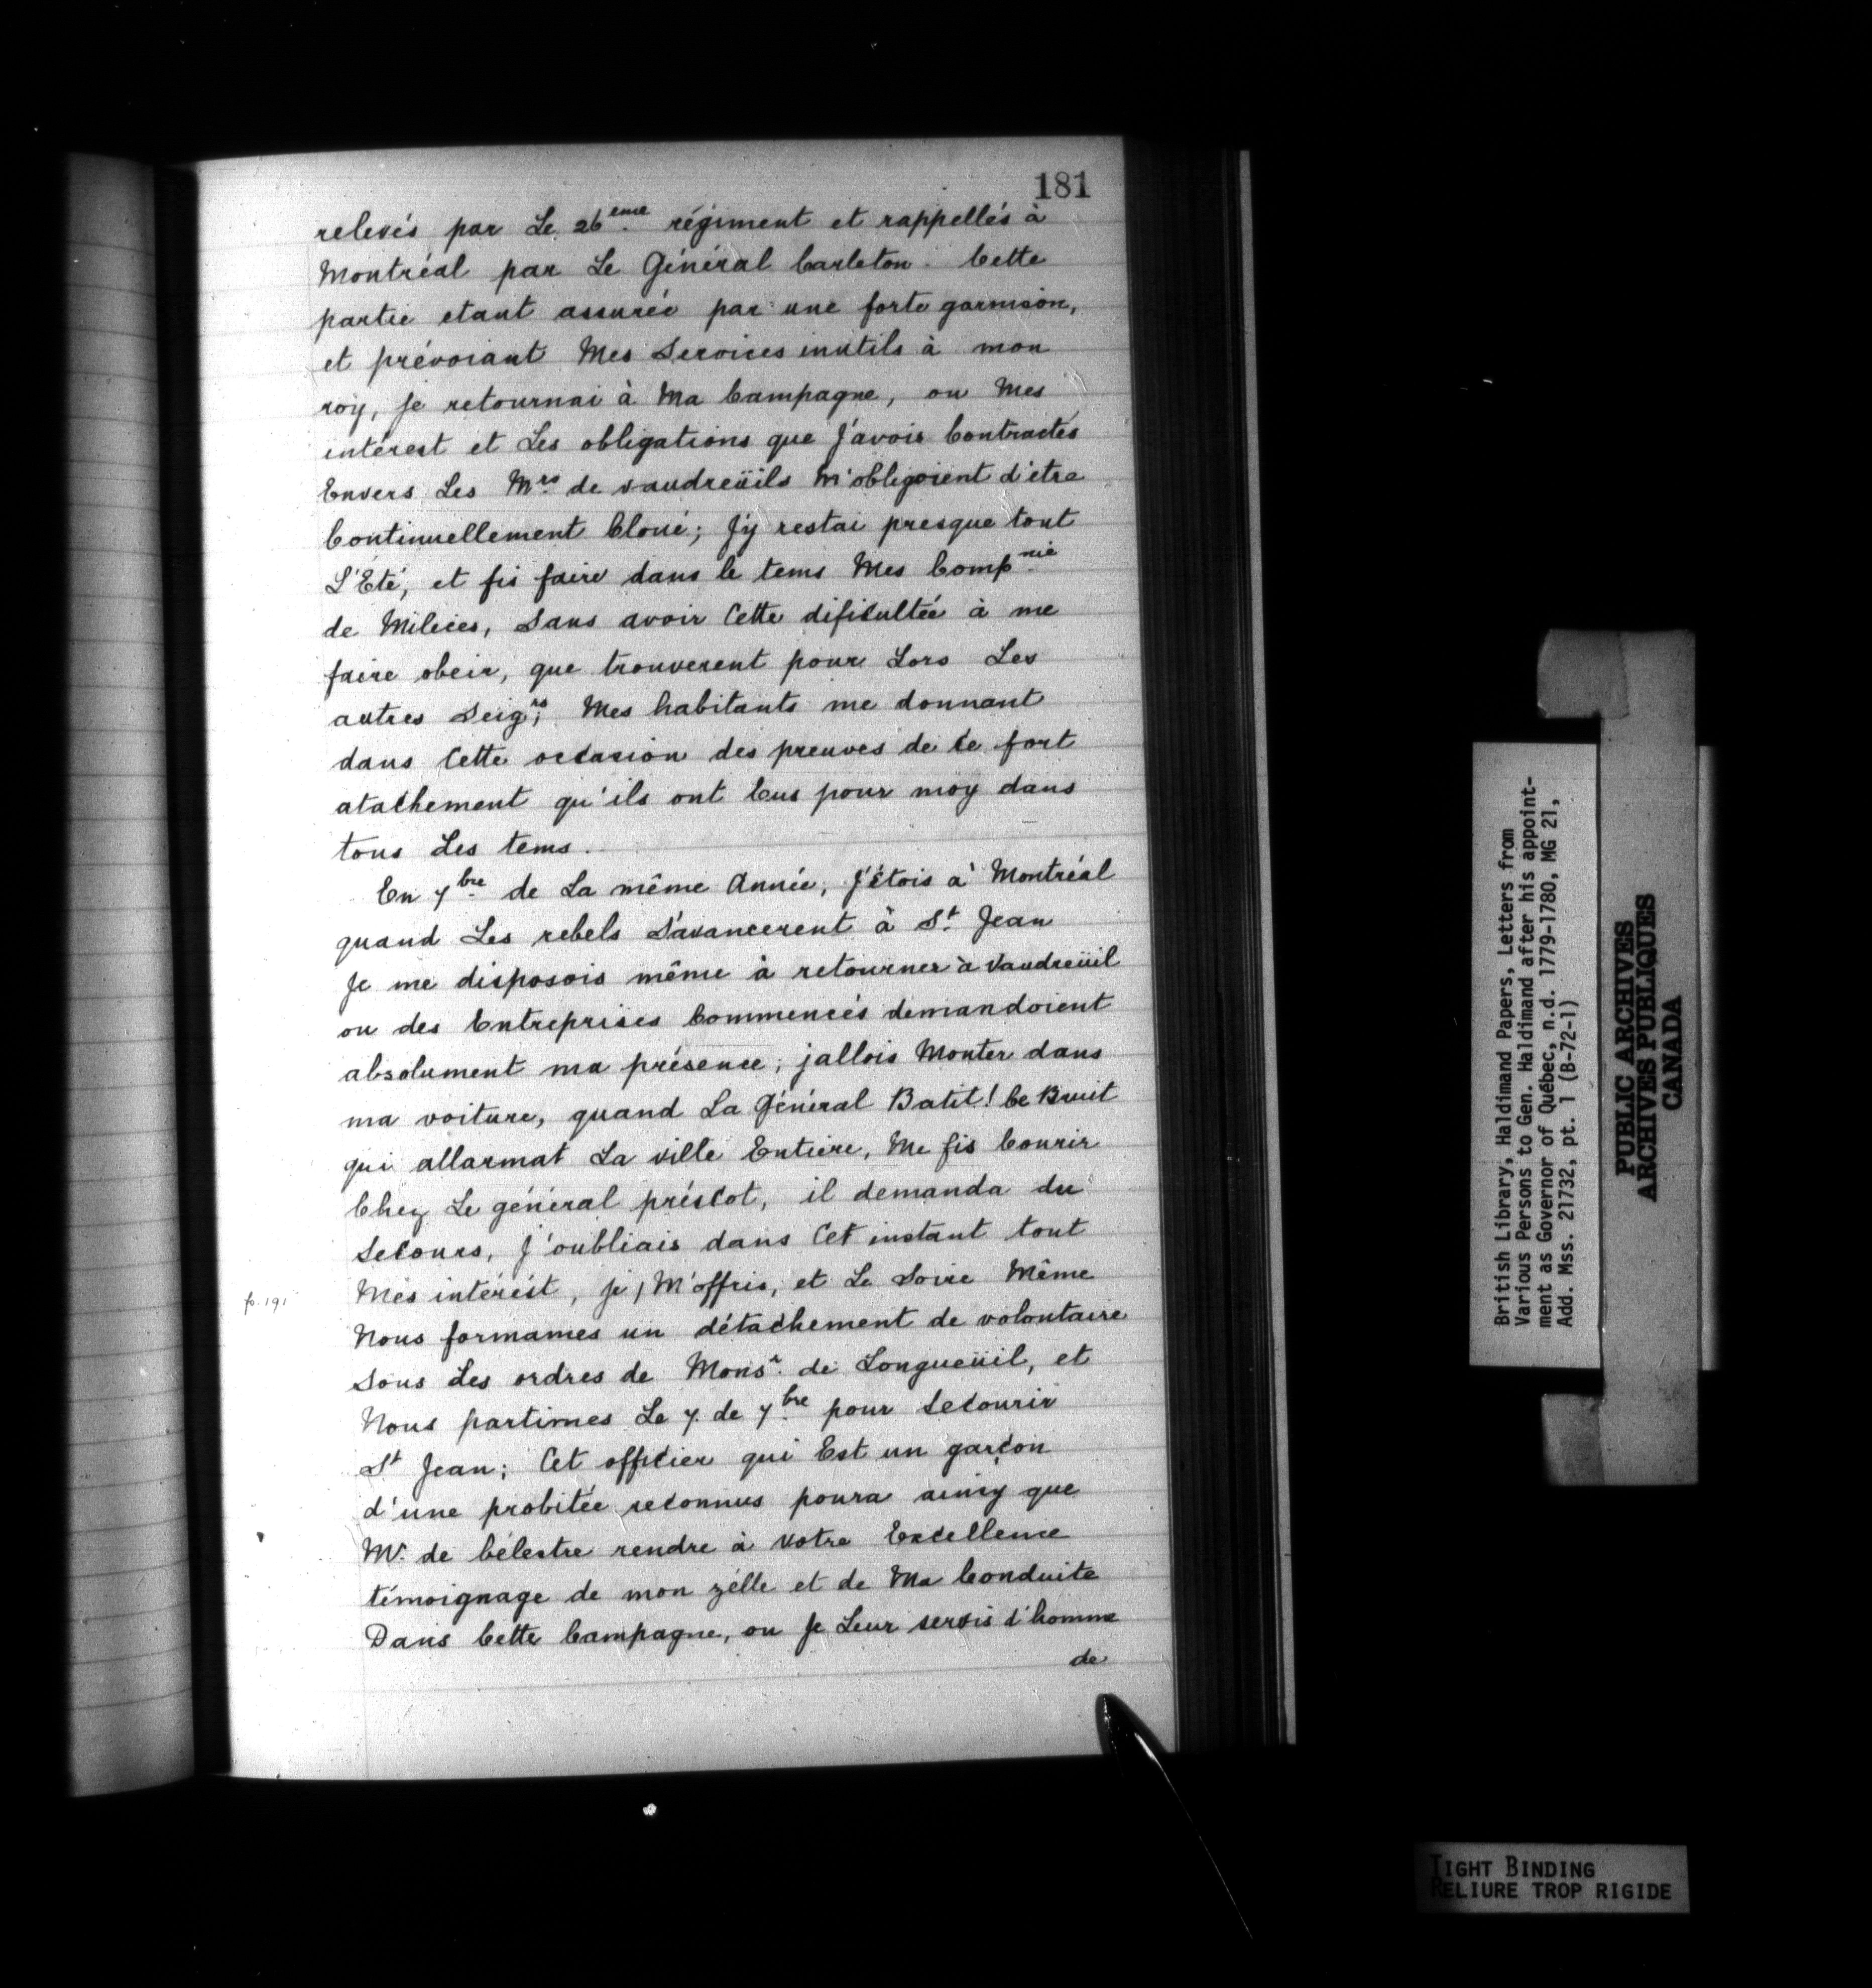 181
relevés par Le 26eme régiment et rappellés à
Montréal par Le Général Carleton. Cette
partie etant assurée par une forte garnison,
et prévoiant Mes Services inutils à mon
roy, je retournai à Ma Campagne, ou Mes
intérest et Les obligations que J'avois Contractés
Envers Les Mrs de vaudreüils M'obligoient d'être
Continuellement Cloué; J'y restai presque tout
L'Eté, et fis faire dans le tems Mes Compnie
de Milices, Sans avoir Cette dificultée à me
faire obeir, que trouverent pour Lors Les
autres Seigrs; Mes habitants me donnant
dans Cette occasion des preuves de Ce fort
atachement qu'ils ont Eus pour moy dans
tous Les tems.
En 7bre de La même Année, J'étois à Montréal
quand Les rebels S'avancerent à St Jean
Je me disposois même à retourner à Vaudreüil
ou des Entreprises Commencés demandoient
absolument ma présence; jallois Monter dans
ma voiture, quand La Général Batit! Ce Bruit
qui allarmat La ville Entiere, Me fis Courir
Chez Le général préscot, il demanda du
Secours, J'oubliais dans Cet instant tout
Mes intérést, je, M'offris, et Le Soire Même
p. 191
Nous formames un détachement de volontaire
Sous Les ordres de Monsr. de Longueüil, et
Nous partimes Le 7. de 7bre pour Secourir
St Jean; Cet officier qui Est un garçon
d'une probitée reconnus poura ainsy que
Mr. de bélestre rendre à Votre Excellence
témoignage de mon zélle et de Ma Conduite
Dans Cette Campagne, ou Je Leur servis d'homme
de
British Library, Haldimand Papers, Letters from
Various Persons to Gen. Haldimand after his appoint-
ment as Governor of Québec, n.d. 1779-1780, MG 21,
Add. Mss. 21732, pt. 1 (B-72-1)
PUBLIC ARCHIVES
ARCHIVES PUBLIQUES
CANADA
TIGHT BINDING
RELIURE TROP RIGIDE